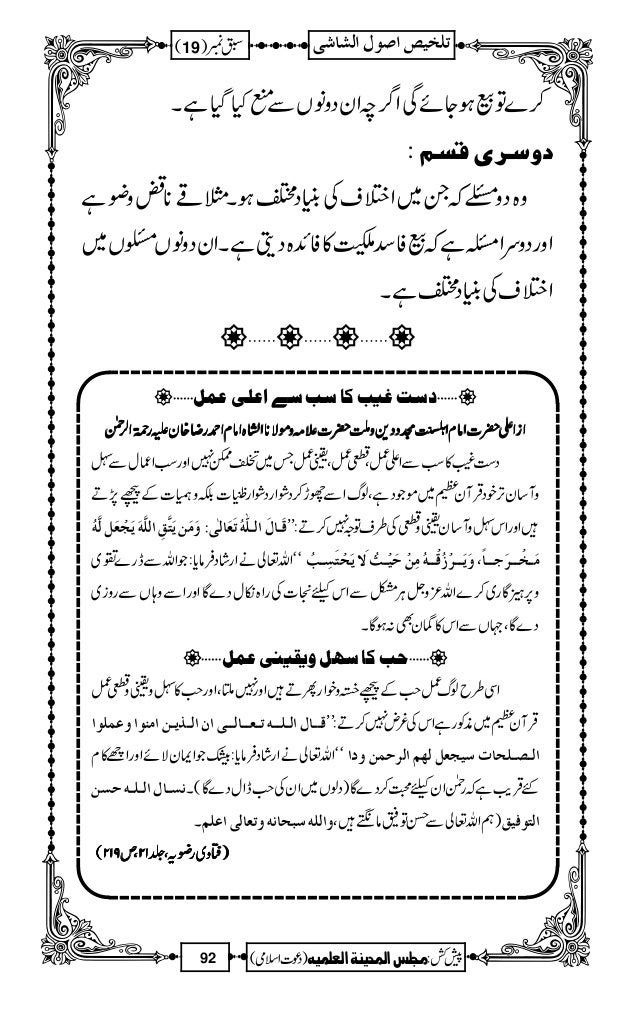 تلخیص اصول الشاشی
سبق نمبر (19)
کرے تو بیع ہو جائے گی اگرچہ ان دونوں سے منع کیا گیا ہے۔
دوسری قسم :
وہ دو مسئلے کہ جن میں اختلاف کی بنیاد مختلف ہو۔ مثلا قے ناقض وضو ہے
اور دوسرا مسئلہ ہے کہ بیع فاسد ملکیت کا فائدہ دیتی ہے۔ ان دونوں مسئلوں میں
اختلاف کی بنیاد مختلف ہے۔
......دست غیب کا سب سے اعلی عمل......
از اعلی حضرت امام اہلسنت مجدد دین وملت حضرت علامہ ومولانا الشاہ امام احمد رضا خان علیہ رحمۃ الرحمٰن
دست غیب کا سب سے اعلی عمل، قطعی عمل، یقینی عمل جس میں تخلف ممکن نہیں اور سب اعمال سے سہل
وآسان تر خود قرآن عظیم میں موجود ہے، لوگ اسے چھوڑ کر دشوار دشوار ظنیات بلکہ وہمیات کے پیچھے پڑتے
ہیں اور اس سہل وآسان یقینی وقطعی کی طرف توجہ نہیں کرتے: ’’قَالَ اللّٰهُ تَعَالٰی: وَمَن يَتَّقِ اللَّهَ يَجْعَل لَّهُ
مَخْرَجاً، وَيَرْزُقْهُ مِنْ حَيْثُ لَا يَحْتَسِبُ‘‘ اللہ تعالی نے ارشاد فرمایا: جو اللہ سے ڈرے تقوی
و پرہیزگاری کرے اللہ عزوجل ہر مشکل سے اس کیلئے نجات کی راہ نکال دے گا اور اسے وہاں سے روزی
دے گا، جہاں سے اس کا گمان بھی نہ ہوگا۔
......حب کا سهل ویقینی عمل......
اسی طرح لوگ عمل حب کے پیچھے خستہ وخوار پھرتے ہیں اور نہیں ملتا، اور حب کا سہل ویقینی وقطعی عمل
قرآن عظیم میں مذکور ہے اس کی غرض نہیں کرتے: ’’قال اللہ تعالی ان الذین امنوا وعملوا
الصلحات سیجعل لهم الرحمن ودا‘‘ اللہ تعالی نے ارشاد فرمایا: بیشک جو ایمان لائے اور اچھے کام
کئے قریب ہے کہ رحمٰن ان کیلئے محبت کر دے گا (دلوں میں ان کی حب ڈال دے گا)۔ نسال اللہ حسن
التوفیق (ہم اللہ تعالی سے حسن توفیق مانگتے ہیں، واللہ سبحانه وتعالی اعلم۔
(فتاوی رضویہ، جلد ۲۱، ص ۲۱۹)
پیش کش: مجلس المدینة العلمیه (دعوت اسلامی)
92